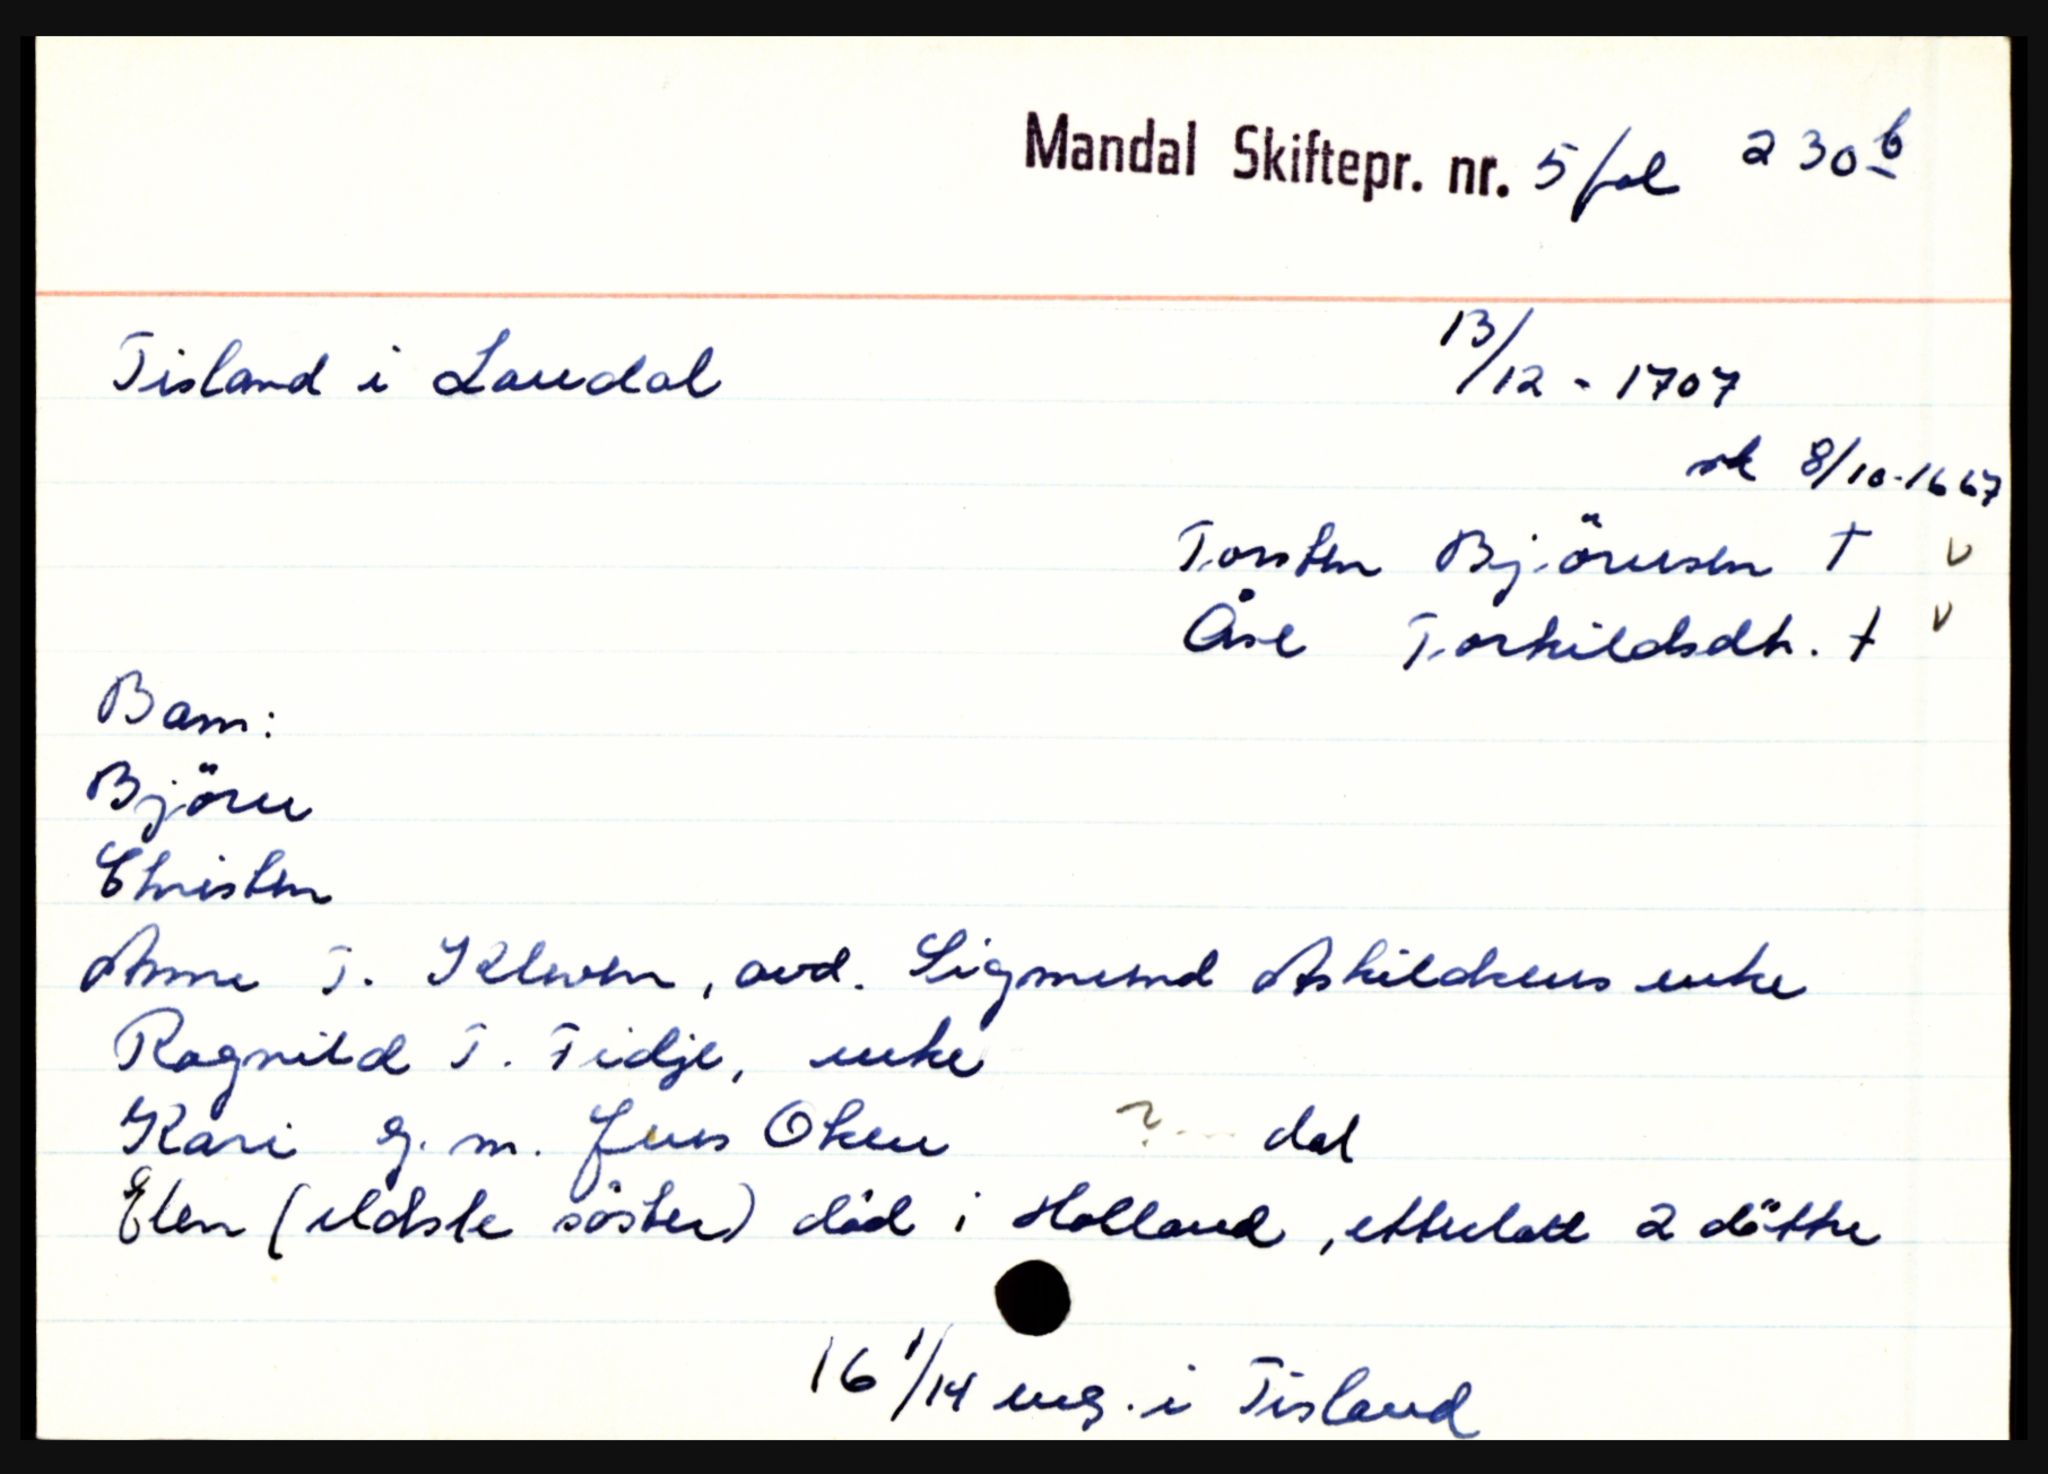 Mandal Skiftepr. nr. 5 fol 230 b
Tisland i Laudal 13/12 - 1707
sk 8/10-1667
Torsten Björnsen † v
Åse Torkildsdtr. † v
Barn:
Björn
Christen
Anne T. Kleven, avd. Sigmund Askildsens enke
Ragnild T. Tidje, enke
Kari g. m. Jens Oken ? --- dal
Elen (eldste söster) död i Holland, etterlatt 2 döttre
16 1/14 eng. i Tisland